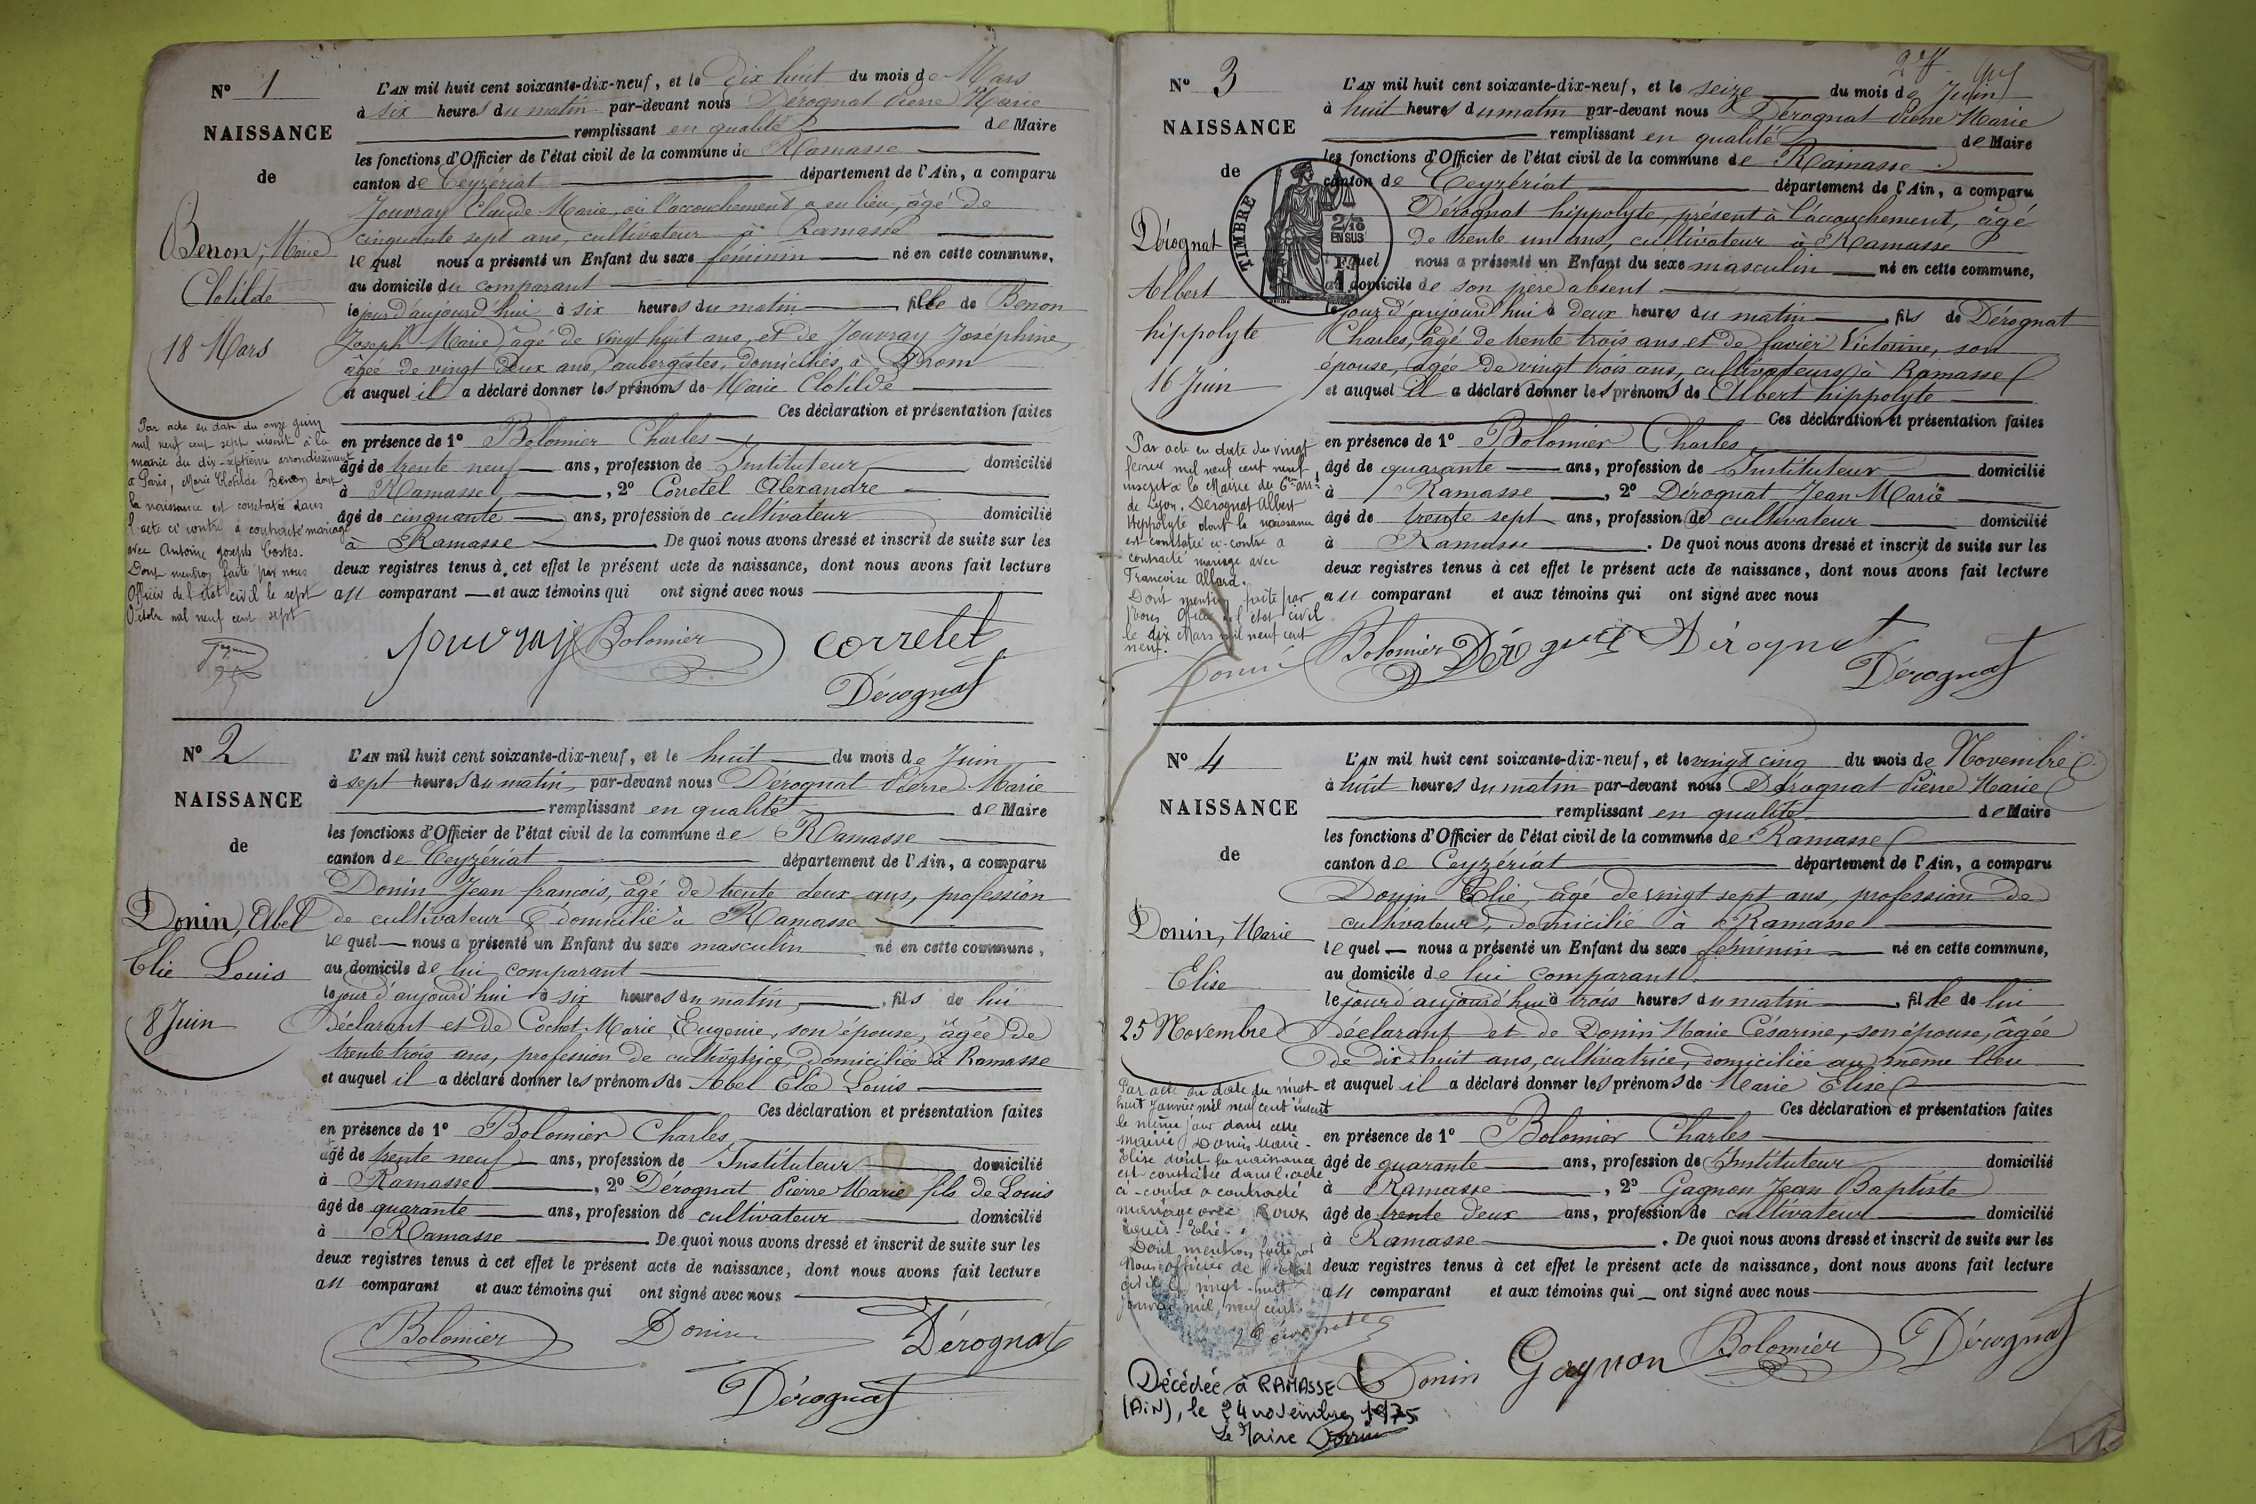 N° 1
NAISSANCE
de
Benon, Marie
Clotilde
18 Mars
Par acte en date du onze juin
mil neuf cent sept inscrit à la
mairie du dix-septième arrondissement
à Paris, Marie Clotilde Benon dont
la naissance est constatée dans
l'acte ci contre a contracté mariage
avec Antoine Joseph Costes.
Dont mention faite par nous
Officier de l'état civil le sept
Octobre mil neuf cent sept
L'AN mil huit cent soixante-dix-neuf, et le Dix huit du mois de Mars
à six heures du matin par-devant nous Dérognat Pierre Marie
remplissant en qualité de Maire
les fonctions d'Officier de l'état civil de la commune de Ramasse
canton de Ceyzériat département de l'Ain, a comparu
Jouvray Claude Marie, où l'accouchement a eu lieu, âgé de
cinquante sept ans, cultivateur à Ramasse
lequel nous a présenté un Enfant du sexe féminin né en cette commune,
au domicile du comparant
le jour d'aujourd'hui à six heures du matin, fille de Benon
Joseph Marie âgé de vingt huit ans, et de Jouvray Joséphine,
âgée de vingt deux ans, aubergistes, domiciliés à
et auquel il a déclaré donner les prénoms de Marie Clotilde
Ces déclaration et présentation faites
en présence de 1° Bolomier Charles
âgé de trente neuf ans, profession de Instituteur domicilié
à Ramasse, 2° Corretel Alexandre
âgé de cinquante ans, profession de cultivateur domicilié
à Ramasse. De quoi nous avons dressé et inscrit de suite sur les
deux registres tenus à cet effet le présent acte de naissance, dont nous avons fait lecture
au comparant et aux témoins qui ont signé avec nous
Jouvray Bolomier Corretel
Dérognat
N° 2
NAISSANCE
de
Donin, Abel
Elie Louis
8 Juin
L'AN mil huit cent soixante-dix-neuf, et le huit du mois de Juin
à sept heures du matin, par-devant nous Dérognat Pierre Marie
remplissant en qualité de Maire
les fonctions d'Officier de l'état civil de la commune de Ramasse
canton de Ceyzériat département de l'Ain, a comparu
Donin Jean françois, âgé de trente deux ans, profession
de cultivateur domicilié à Ramasse
lequel nous a présenté un Enfant du sexe masculin né en cette commune,
au domicile de lui comparant
le jour d'aujourd'hui à six heures du matin, fils de lui
Déclarant et de Cochet Marie Eugenie, son épouse, âgée de
trente trois ans, profession de cultivatrice domiciliée à Ramasse
et auquel il a déclaré donner les prénoms de Abel Elie Louis
Ces déclaration et présentation faites
en présence de 1° Bolomier Charles
âgé de trente neuf ans, profession de Instituteur domicilié
à Ramasse, 2° Dérognat Pierre Marie fils de Louis
âgé de quarante ans, profession de cultivateur domicilié
à Ramasse De quoi nous avons dressé et inscrit de suite sur les
deux registres tenus à cet effet le présent acte de naissance, dont nous avons fait lecture
au comparant et aux témoins qui ont signé avec nous
Bolomier Donin Dérognat
Dérognat
N° 3
NAISSANCE
de
TIMBRE
2/10
EN SUS
Dérognat
Albert
hippolyte
16 Juin
Par acte en date du vingt
février mil neuf cent neuf
inscrit à la Mairie du 6me arrt
de Lyon, Dérognat Albert
Hippolyte dont la naissance
est constatée ci-contre a
contracté mariage avec
Françoise Allard.
Dont mention faite par
Nous Officier de l'état civil
le dix Mars mil neuf cent
neuf.
L'AN mil huit cent soixante-dix-neuf, et le seize du mois de Juin
à huit heures du matin par-devant nous Dérognat Pierre Marie
remplissant en qualité de Maire
les fonctions d'Officier de l'état civil de la commune de Ramasse
canton de Ceyzériat département de l'Ain, a comparu
Dérognat hippolyte, présent à l'accouchement, âgé
de trente un ans, cultivateur à Ramasse
lequel nous a présenté un Enfant du sexe masculin né en cette commune,
au domicile de son père absent
le jour d'aujourd'hui à deux heures du matin, fils de Dérognat
Charles, âgé de trente trois ans et de favier Victorine, son
épouse, âgée de vingt trois ans, cultivateurs à Ramasse
et auquel il a déclaré donner les prénoms de Albert hippolyte
Ces déclaration et présentation faites
en présence de 1° Bolomier Charles
âgé de quarante ans, profession de Instituteur domicilié
à Ramasse, 2° Dérognat Jean Marie
âgé de trente sept ans, profession de cultivateur domicilié
à Ramasse. De quoi nous avons dressé et inscrit de suite sur les
deux registres tenus à cet effet le présent acte de naissance, dont nous avons fait lecture
au comparant et aux témoins qui ont signé avec nous
Bolomier Dérognat Dérognat
Dérognat
N° 4
NAISSANCE
de
Donin, Marie
Elise
25 Novembre
Par acte en date du vingt
huit Janvier mil neuf cent inscrit
le même jour dans cette
mairie, Donin Marie-
Elise dont la naissance
est constatée dans l'acte
ci-contre a contracté
mariage avec Roux
Louis-Elie.
Dont mention faite par
Nous officier de l'état
civil le vingt-huit
janvier mil neuf cent.
Décédée à RAMASSE
(AiN), le 24 novembre 1975
Le Maire
L'AN mil huit cent soixante-dix-neuf, et le vingt cinq du mois de Novembre
à huit heures du matin par-devant nous Dérognat Pierre Marie
remplissant en qualité de Maire
les fonctions d'Officier de l'état civil de la commune de Ramasse
canton de Ceyzériat département de l'Ain, a comparu
Donin Elie, âgé de vingt sept ans, profession de
cultivateur, domicilié à Ramasse
lequel nous a présenté un Enfant du sexe féminin né en cette commune,
au domicile de lui comparant
le jour d'aujourd'hui à trois heures du matin, fille de lui
déclarant et de Donin Marie Césarine, son épouse, âgée
de dix huit ans, cultivatrice, domiciliée au même lieu
et auquel il a déclaré donner les prénoms de Marie Elise
Ces déclaration et présentation faites
en présence de 1° Bolomier Charles
âgé de quarante ans, profession de Instituteur domicilié
à Ramasse, 2° Gagnon Jean Baptiste
âgé de trente deux ans, profession de cultivateur domicilié
à Ramasse. De quoi nous avons dressé et inscrit de suite sur les
deux registres tenus à cet effet le présent acte de naissance, dont nous avons fait lecture
au comparant et aux témoins qui ont signé avec nous
Donin Gagnon Bolomier Dérognat